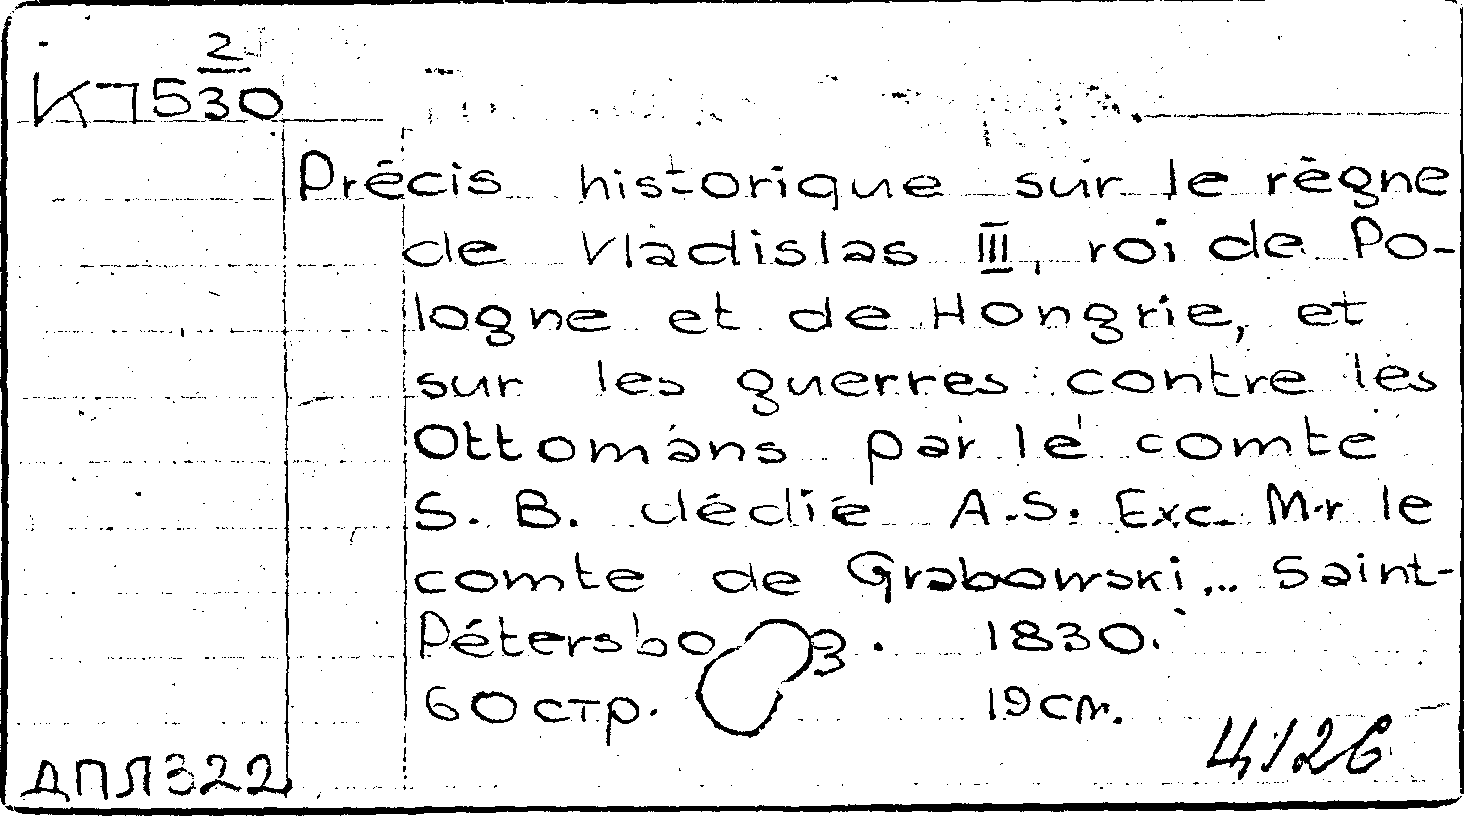 2
К7530
Précis historique sur le règne
de Vladislas III, roi de Po-
logne et de Hongrie, et
sur les guerres contre les
Ottomans par le comte
S. B. dédié A.S. Exc. M-r le
comte de Grabowski... Saint-
1830.
60 стр. 19 см.
ДПЛ322